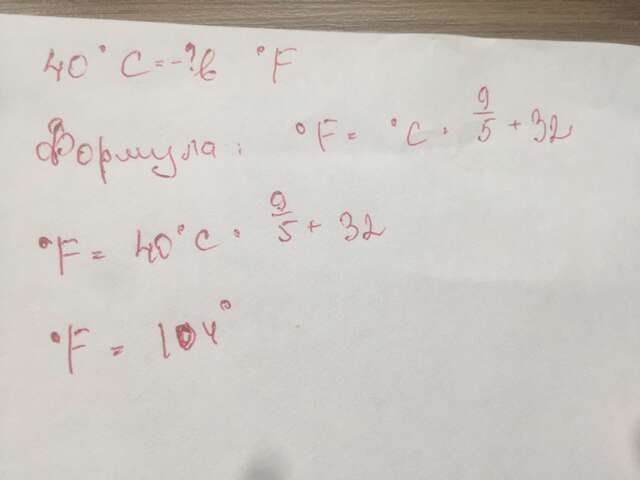 40° C = -? в °F
Формула: °F = °C · 9/5 + 32
°F = 40°C · 9/5 + 32
°F = 104°